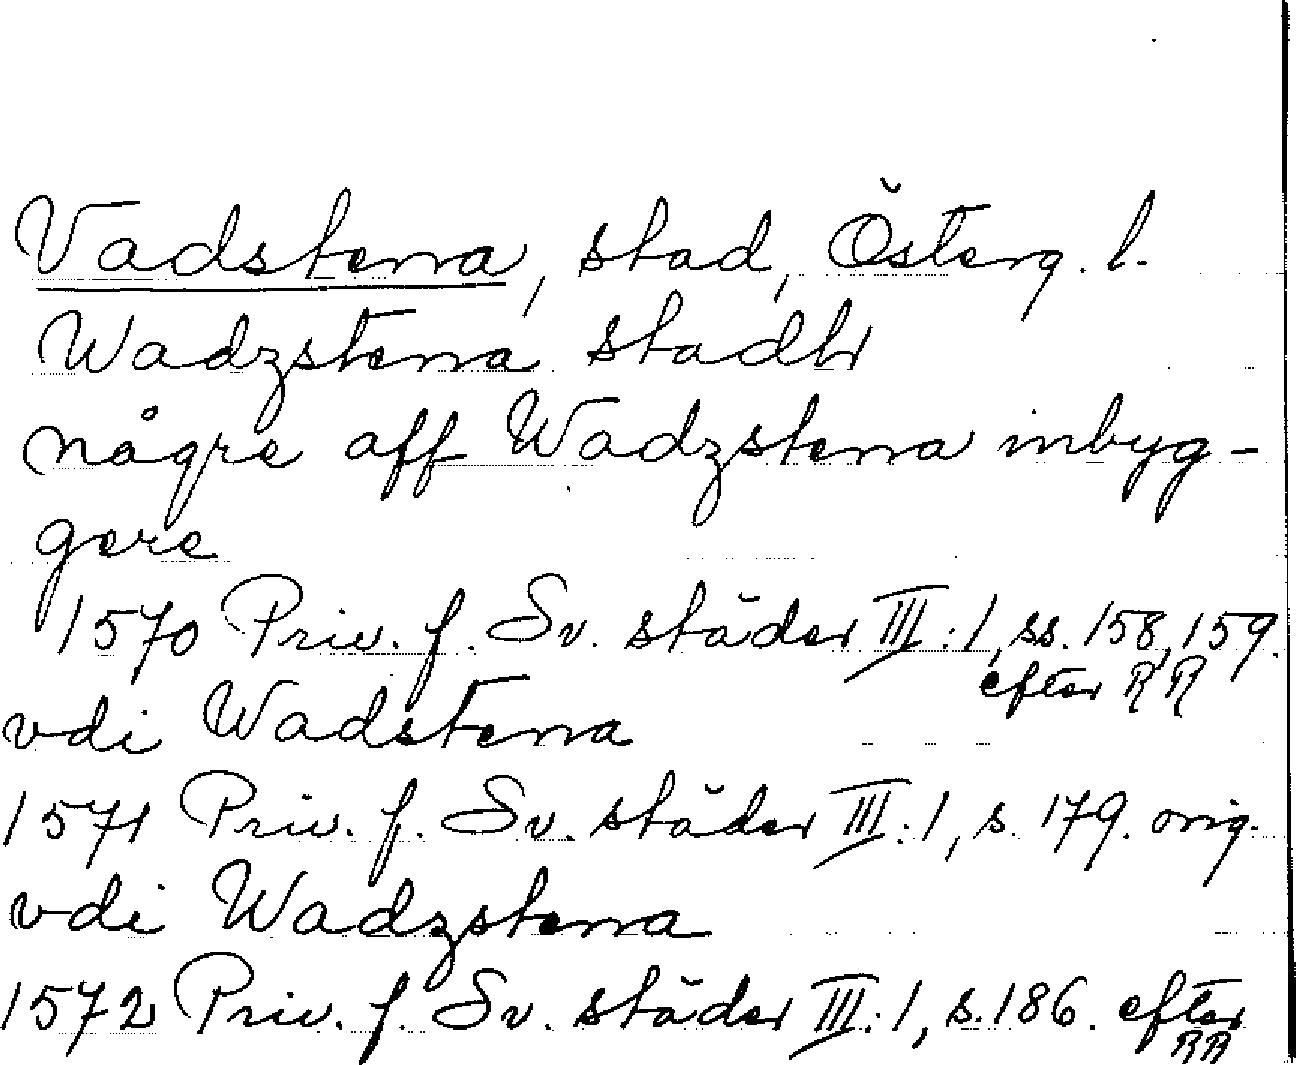 Vadstena, stad, Österg. l.
Wadzstena stadh
någre aff Wadzstena inbyg-
gere
1570 Priv. f. Sv. städer III:1, ss. 158, 159.
efter RR
vdi Wadstena
1571 Priv. f. Sv. städer III:1, s. 179. orig.
vdi Wadzstena
1572 Priv. f. Sv. städer III:1, s. 186. efter
RR